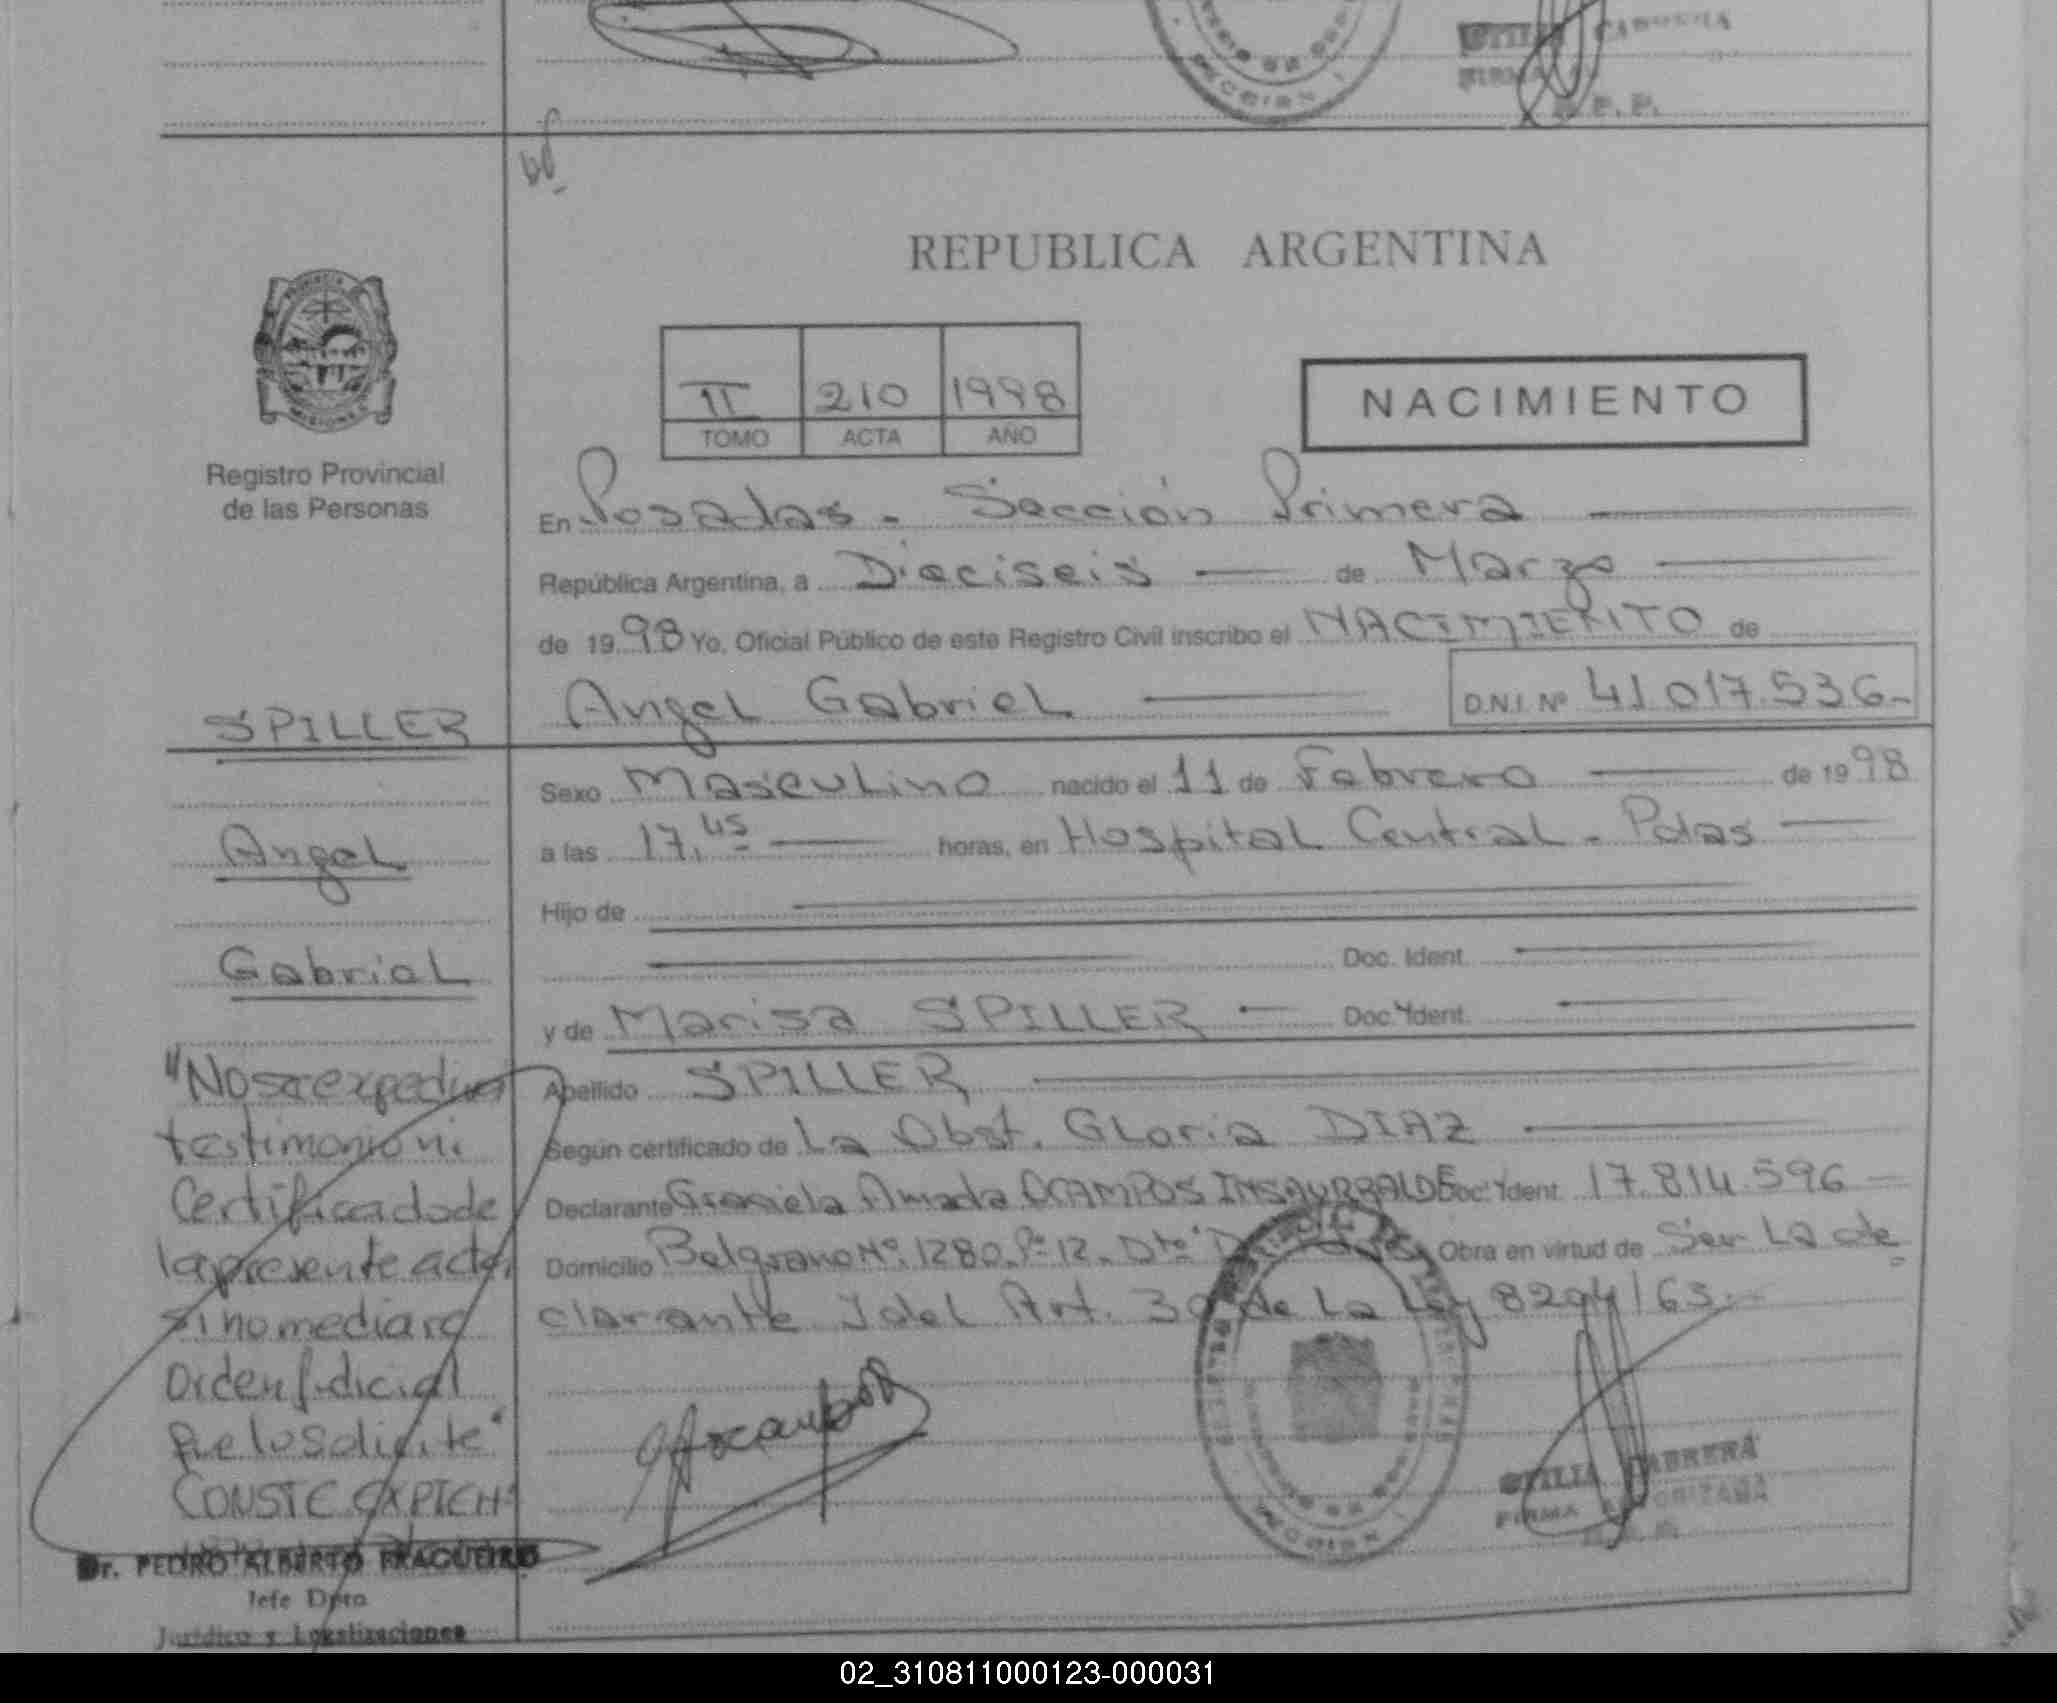 CABRERA
FIRMA
R.P.P.
REPUBLICA ARGENTINA
PROVINCIA DE
MISIONES
Registro Provincial
de las Personas
II 210 1998
TOMO ACTA AÑO
NACIMIENTO
En Posadas. Sección Primera
República Argentina, a Dieciseis de Marzo
de 1998 Yo, Oficial Público de este Registro Civil inscribo el NACIMIENTO de
Angel Gabriel D.N.I. Nº 41.017.536-
SPILLER
Sexo Masculino nacido el 11 de Febrero de 1998
a las 17,45 horas, en Hospital Central - Pdas
Angel
Hijo de
Gabriel
Doc. Ident.
y de Marisa SPILLER Doc. Ident.
Apellido SPILLER
Según certificado de La Obst. Gloria DIAZ
Declarante Graciela Amada OCAMPOS INSAURRALDE Doc. Ident. 17.814.596
Domicilio Belgrano Nº 1280. Pº 12. Dto Obra en virtud de Ser La de
clarante Y del Art. 30 de La Ley 8204/63.
"No se expedira
testimonio ni
Certificado de
la presente acta,
si no mediara
Orden Judicial
que lo solicite"
CONSTE EXPTE Hº
Dr. PEDRO ALBERTO FRAGUEIRO
Jefe Dpto
Jurídico y Legalizaciones
OTILIA CABRERA
FIRMA AUTORIZADA
R.P.P.
02_310811000123-000031